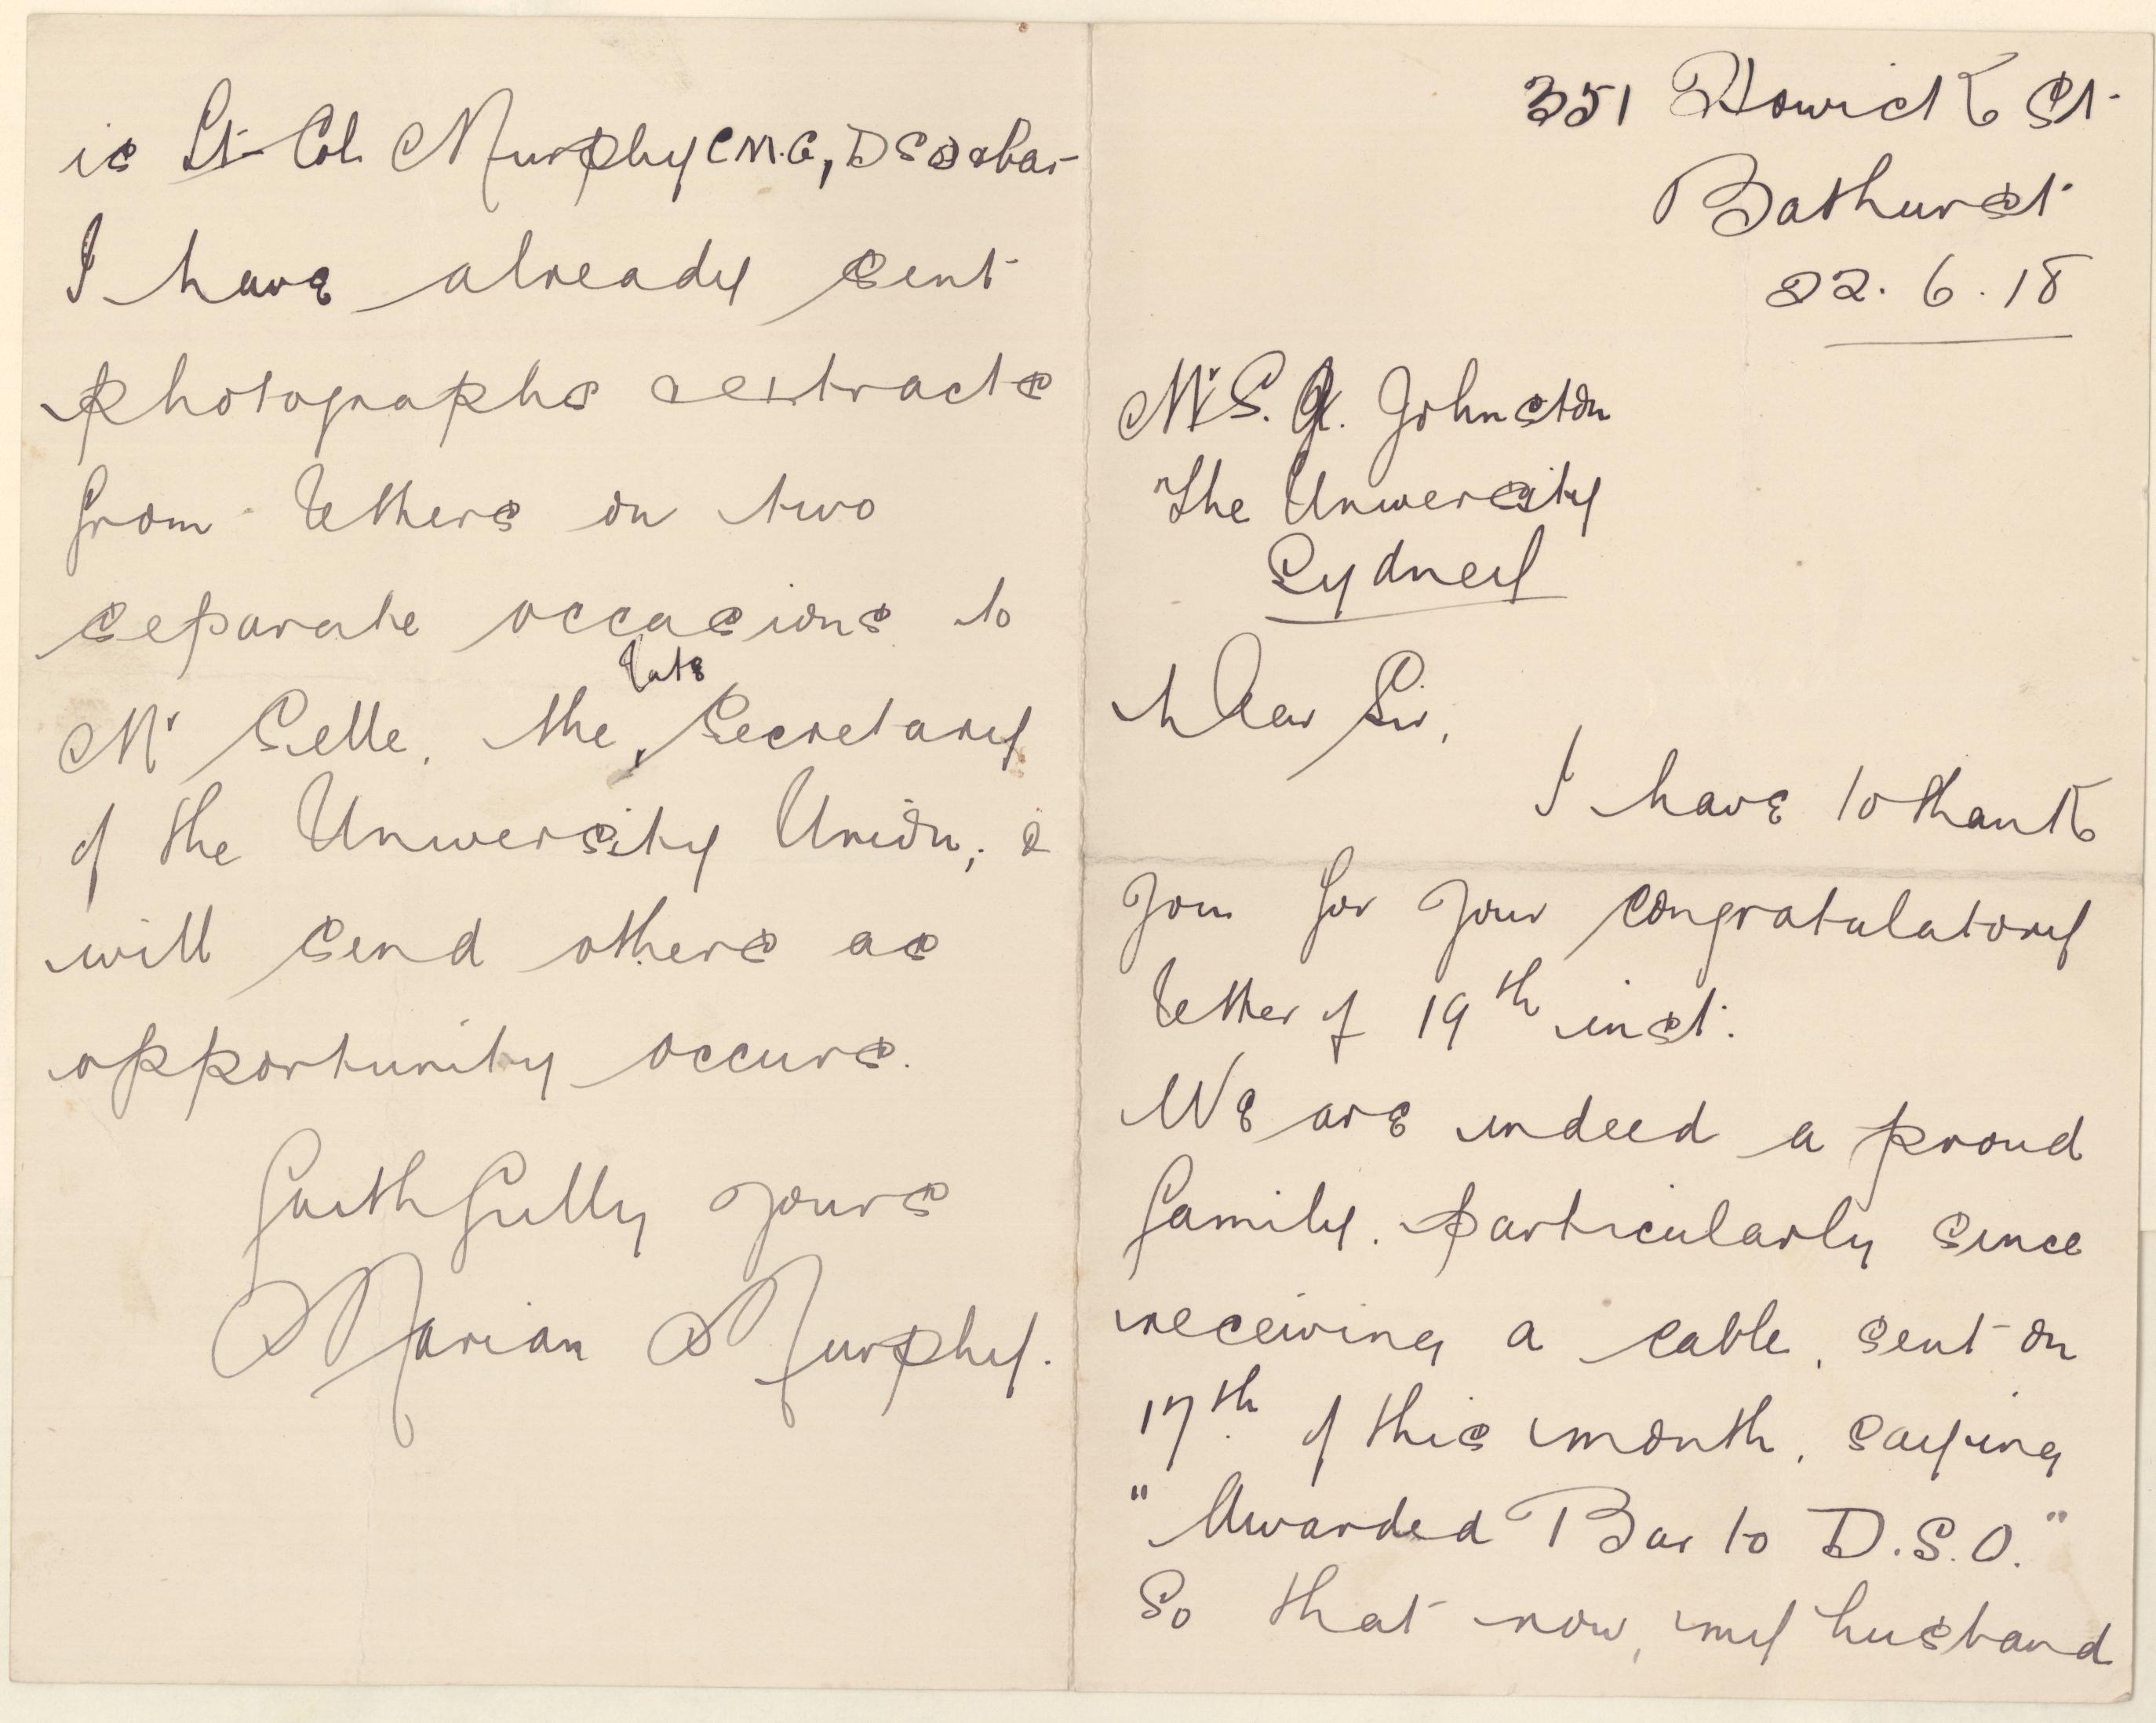 351 Howick St.
Bathurst
22. 6. 18
Mr S. A. Johnston
The University
Sydney
Dear Sir,
I have to thank
you for your congratulatory
letter of 19th inst.
We are indeed a proud
family, particularly since
receiving a cable, sent on
17th of this month, saying
"Awarded Bar to D.S.O."
So that now, my husband
is Lt-Col Murphy C.M.G, DSO & bar
I have already sent
photographs & extracts
from letters on two
separate occasions to
late
Mr Selle, the Secretary
of the University Union; &
will send others as
opportunity occurs.
Faithfully yours
Marian Murphy.